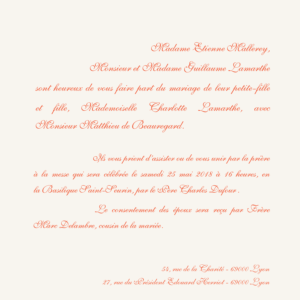 Madame Etienne Mallorey,
Monsieur et Madame Guillaume Lamarthe
sont heureux de vous faire part du mariage de leur petite-fille
et fille, Mademoiselle Charlotte Lamarthe, avec
Monsieur Matthieu de Beauregard.
Ils vous prient d'assister ou de vous unir par la prière
à la messe qui sera célébrée le samedi 25 mai 2018 à 16 heures, en
la Basilique Saint-Séurin, par le Père Charles Dufour.
Le consentement des époux sera reçu par Frère
Marc Delambre, cousin de la mariée.
52, rue de la Charité - 69000 Lyon
17, rue du Président Edouard Herriot - 69000 Lyon